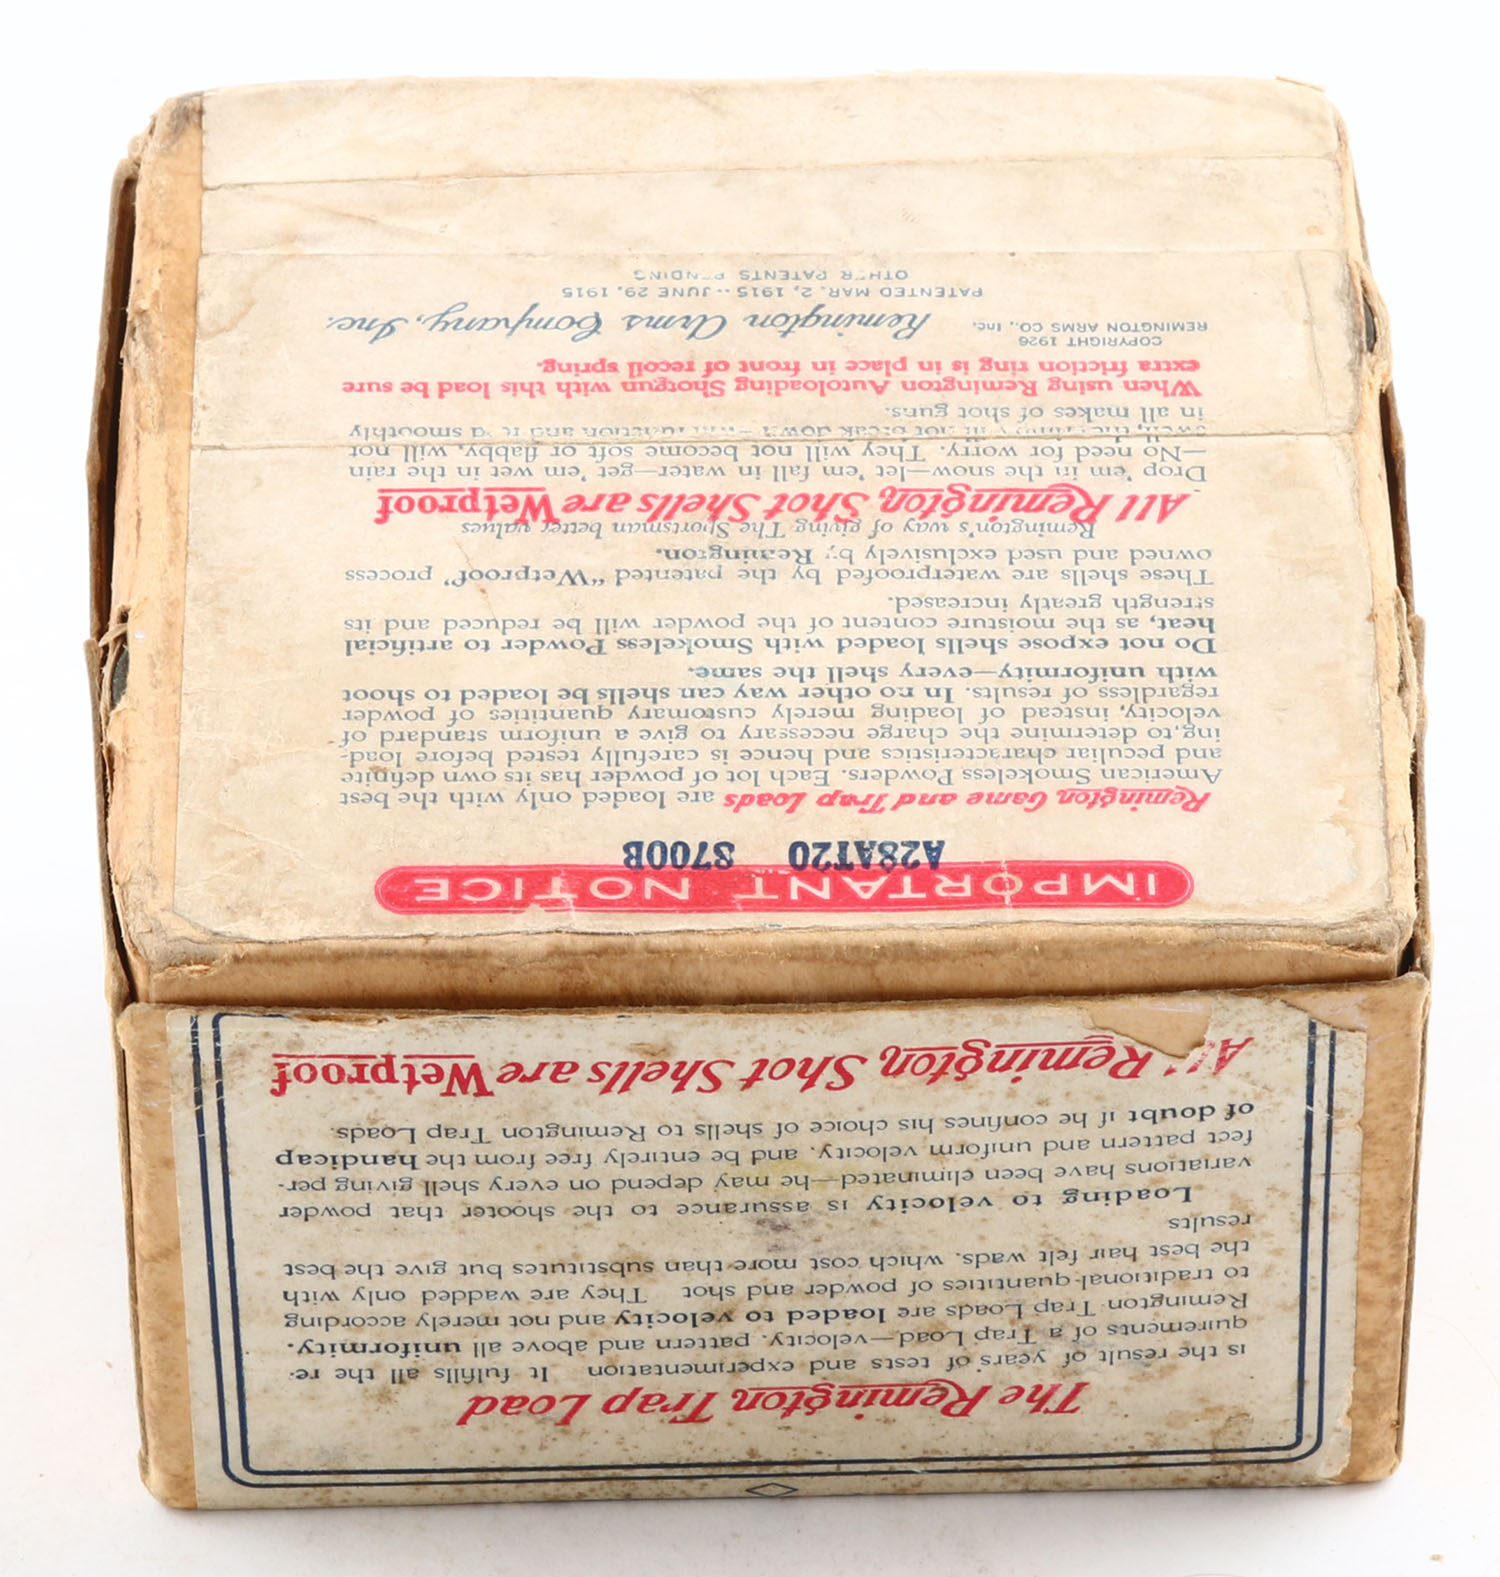 The Remington Trap Load
is the result of years of tests and experimentation It fulfills all the re-
quirements of a Trap Load—velocity, pattern and above all uniformity.
Remington Trap Loads are loaded to velocity and not merely according
to traditional quantities of powder and shot They are wadded only with
the best hair felt wads, which cost more than substitutes but give the best
results
Loading to velocity is assurance to the shooter that powder
variations have been eliminated—he may depend on every shell giving per-
fect pattern and uniform velocity, and be entirely free from the handicap
of doubt if he confines his choice of shells to Remington Trap Loads.
All Remington Shot Shells are Wetproof
IMPORTANT NOTICE
A28AT20 8700B
Remington Game and Trap Loads are loaded only with the best
American Smokeless Powders. Each lot of powder has its own definite
and peculiar characteristics and hence is carefully tested before load-
ing, to determine the charge necessary to give a uniform standard of
velocity, instead of loading merely customary quantities of powder
regardless of results. In no other way can shells be loaded to shoot
with uniformity—every shell the same.
Do not expose shells loaded with Smokeless Powder to artificial
heat, as the moisture content of the powder will be reduced and its
strength greatly increased.
These shells are waterproofed by the patented "Wetproof" process
owned and used exclusively by Remington.
Remington's way of giving The Sportsman better values
All Remington Shot Shells are Wetproof
Drop 'em in the snow—let 'em fall in water—get 'em wet in the rain
—No need for worry. They will not become soft or flabby, will not
swell, the crimp will not break down—will function and feed smoothly
in all makes of shot guns.
When using Remington Autoloading Shotgun with this load be sure
extra friction ring is in place in front of recoil spring.
COPYRIGHT 1926
REMINGTON ARMS CO., Inc.
Remington Arms Company, Inc.
PATENTED MAR. 2, 1915 -- JUNE 29, 1915
OTHER PATENTS PENDING